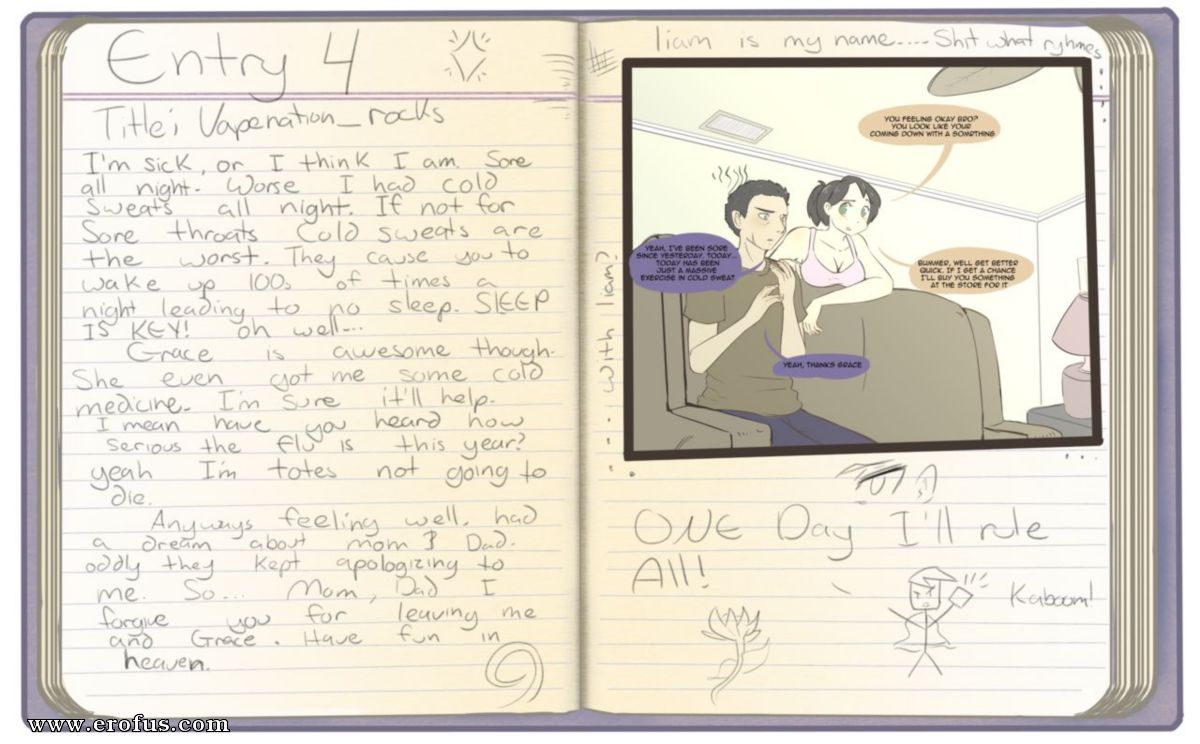 Entry 4
Title; Vapenation_rocks
I'm sick, or I think I am. Sore
all night. Worse I had cold
sweats all night. If not for
Sore throats cold sweats are
the worst. They cause you to
wake up 100s of times a
night leading to no sleep. SLEEP
IS KEY! oh well...
Grace is awesome though.
She even got me some cold
medicine. I'm sure it'll help.
I mean have you heard how
serious the flu is this year?
yeah I'm totes not going to
die.
Anyways feeling well. had
a dream about mom & Dad.
oddly they kept apologizing to
me. So... Mom, Dad I
forgive you for leaving me
and Grace. Have fun in
heaven.
liam is my name.... Shit what ryhmes
with liam?
YOU FEELING OKAY BRO?
YOU LOOK LIKE YOUR
COMING DOWN WITH A SOMRTHING
YEAH, I'VE BEEN SORE
SINCE YESTERDAY. TODAY...
TODAY HAS BEEN
JUST A MASSIVE
EXERCISE IN COLD SWEAT
BUMMER, WELL GET BETTER
QUICK. IF I GET A CHANCE
I'LL BUY YOU SOMETHING
AT THE STORE FOR IT
YEAH, THANKS GRACE
ONE Day I'll rule
All!
Kaboom!
www.erofus.com